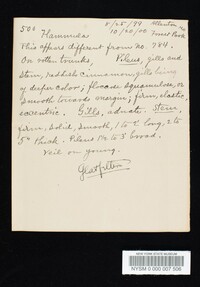 500
8/25/99 Allenton Mo
Flammula 10/20/00
This appears different from no. 784.
On rotten trunks, Pileus, gills and
stem, reddish cinnamon, gills being
of deeper color; floccose squamulose, or
smooth towards margin; firm, elastic,
eccentric. Gills, adnate. Stem,
firm, solid, smooth, 1 to 2" long, 2 to
5" thick. Pileus 1½ to 3 broad.
Veil on young.
Glatfelter
NEW YORK STATE MUSEUM
NYSM 0 000 007 506